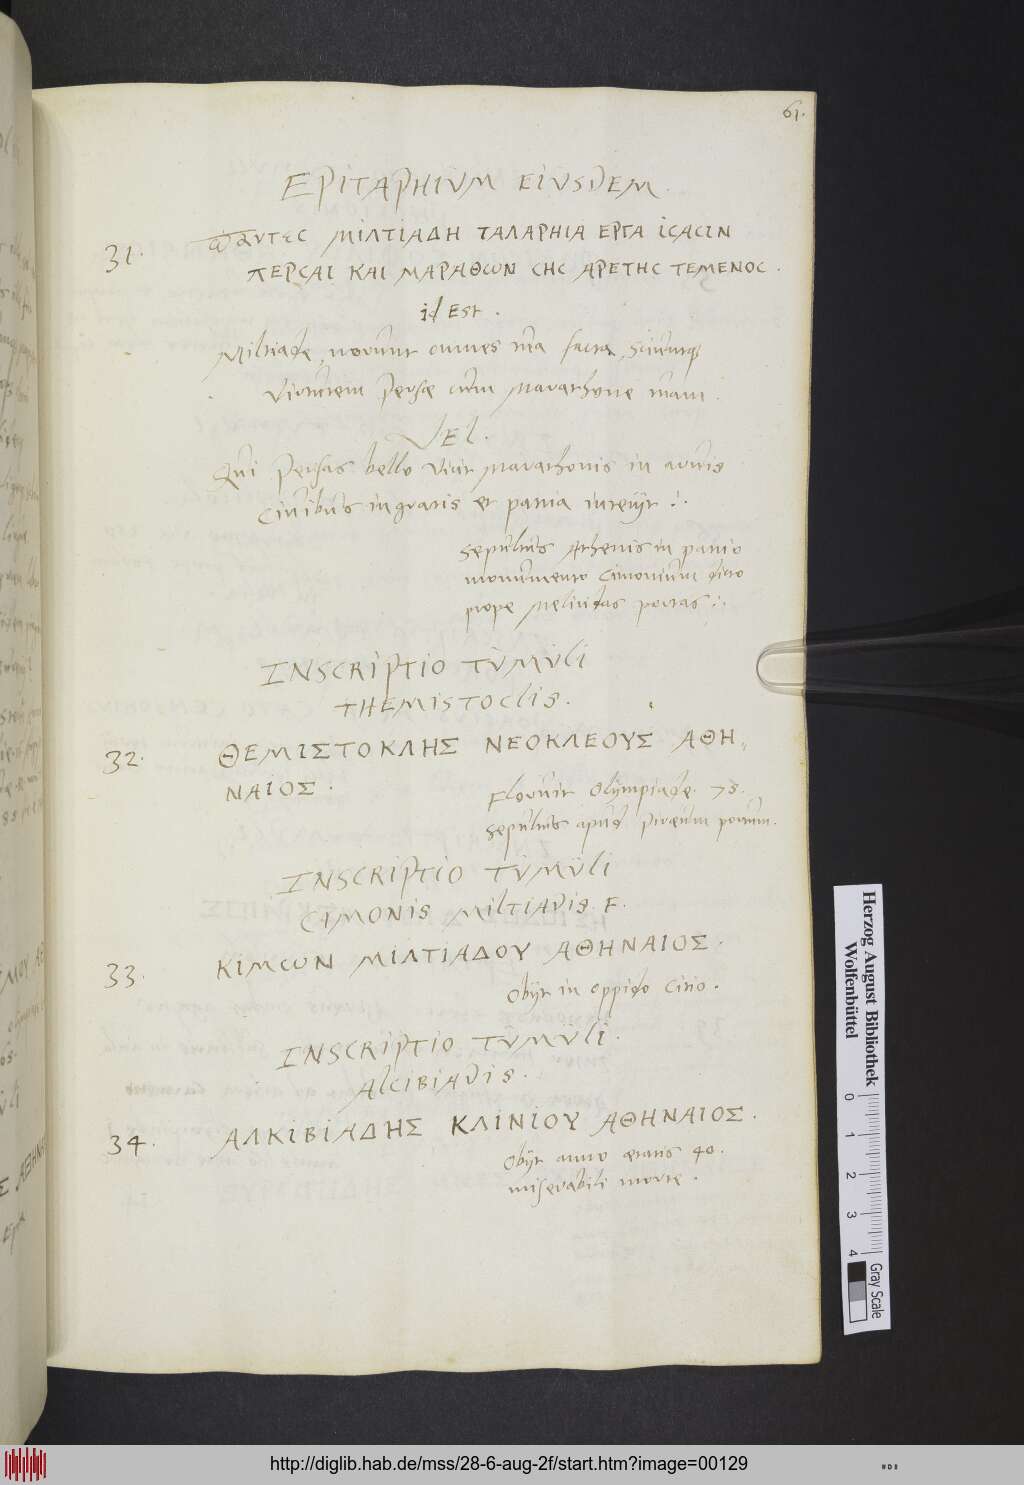 61.
EPITAPHIUM EIUSDEM.
31. παντες ΜΙΛΤΙΑΔΗ ΤΑΛΑΡΗΙΑ ΕΡΓΑ ΙϹΑϹΙΝ
ΠΕΡϹΑΙ ΚΑΙ ΜΑΡΑΘωΝ ϹΗϹ ΑΡΕΤΗϹ ΤΕΜΕΝΟϹ.
id Est.
Miltiade, norunt omnes tua facta, sciuntq
Virtutem Persæ cum Marathone tuam.
VEL.
Qui Persas bello vicit Marathonis in arvis
Civibus ingratis et patria interijt :.
Sepultus Athenis in patrio
monumento Cimonium dicto
prope Melitidas portas :.
INSCRIPTIO TUMULI
THEMISTOCLIS.
32. ΘΕΜΙΣΤΟΚΛΗΣ ΝΕΟΚΛΕΟΥΣ ΑΘΗ„
ΝΑΙΟΣ.
Floruit Olympiade. 78.
Sepultus apud Piræum portum.
INSCRIPTIO TUMULI
CIMONIS MILTIADIS. F.
33. ΚΙΜωΝ ΜΙΛΤΙΑΔΟΥ ΑΘΗΝΑΙΟΣ.
Obijt in oppido Citio.
INSCRIPTIO TUMULI.
ALCIBIADIS.
34. ΑΛΚΙΒΙΑΔΗΣ ΚΛΙΝΙΟΥ ΑΘΗΝΑΙΟΣ.
Obijt anno ætatis 40.
miserabili morte.
Herzog August Bibliothek
Wolfenbüttel
0 1 2 3 4
Gray Scale
http://diglib.hab.de/mss/28-6-aug-2f/start.htm?image=00129